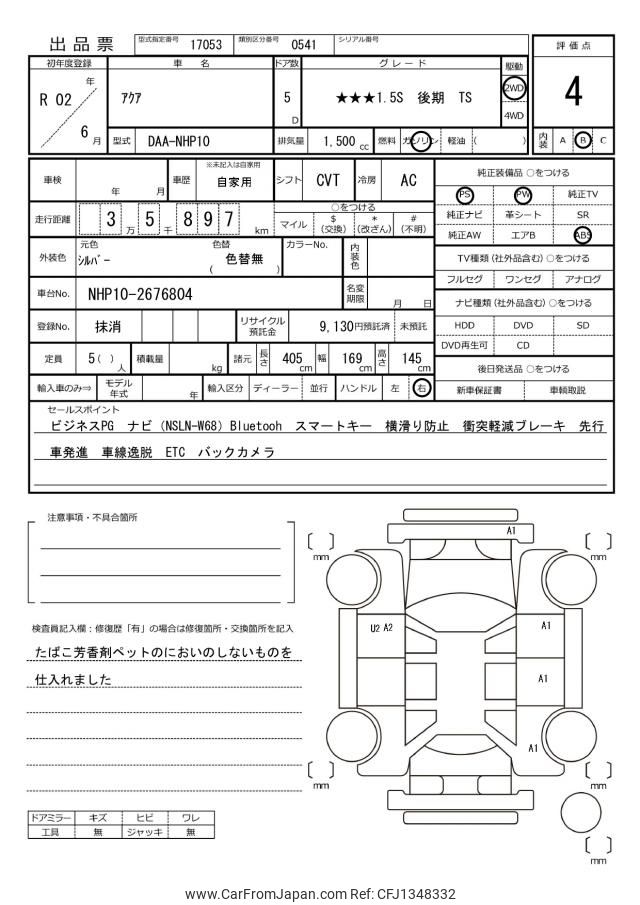 出品票 型式指定番号 17053 類別区分番号 0541 シリアル番号
評価点
4
内装 A B C
初年度登録 車名 ドア数 グレード 駆動
R 02 年 6 月 アクア 5 D ★★★1.5S 後期 TS 2WD 4WD
型式 DAA-NHP10 排気量 1,500 cc 燃料 ガソリン 軽油 ( )
車検 年 月 車歴 ※未記入は自家用 自家用 シフト CVT 冷房 AC
走行距離 3 5 8 9 7 万 千 km ○をつける マイル $ (交換) * (改ざん) # (不明)
外装色 元色 シルバー 色替 ( 色替無 ) カラーNo. 内装色
車台No. NHP10-2676804 名変期限 月 日
登録No. 抹消 リサイクル預託金 9,130円預託済 未預託
定員 5 ( ) 人 積載量 kg 諸元 長さ 405 cm 幅 169 cm 高さ 145 cm
輸入車のみ⇒ モデル年式 年 輸入区分 ディーラー 並行 ハンドル 左 右
純正装備品 ○をつける
PS PW 純正TV
純正ナビ 革シート SR
純正AW エアB ABS
TV種類(社外品含む)○をつける
フルセグ ワンセグ アナログ
ナビ種類(社外品含む)○をつける
HDD DVD SD
DVD再生可 CD
後日発送品 ○をつける
新車保証書 車輌取説
セールスポイント
ビジネスPG ナビ(NSLN-W68)Bluetooh スマートキー 横滑り防止 衝突軽減ブレーキ 先行
車発進 車線逸脱 ETC バックカメラ
注意事項・不具合箇所
検査員記入欄:修復歴「有」の場合は修復箇所・交換箇所を記入
たばこ芳香剤ペットのにおいのしないものを
仕入れました
A1
mm mm
U2 A2 A1
A1
A1
mm mm
mm
ドアミラー キズ ヒビ ワレ
工具 無 ジャッキ 無
www.CarFromJapan.com Ref: CFJ1348332